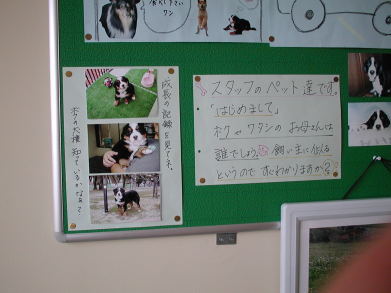 スタッフのペット達です。
「はじめまして」
ボクとワタシのお母さんは
誰でしょう。飼い主に似る
というのですぐわかりますか？
成長の記録を見てネ。
ボクの犬種知っているかなぁ？